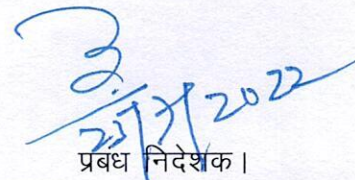 2022
प्रबंध निदेशक।